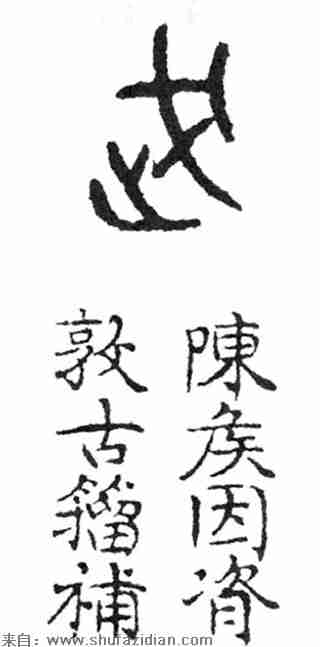 武
陳矦因
敦古籀補
来自：www.shufazidian.com